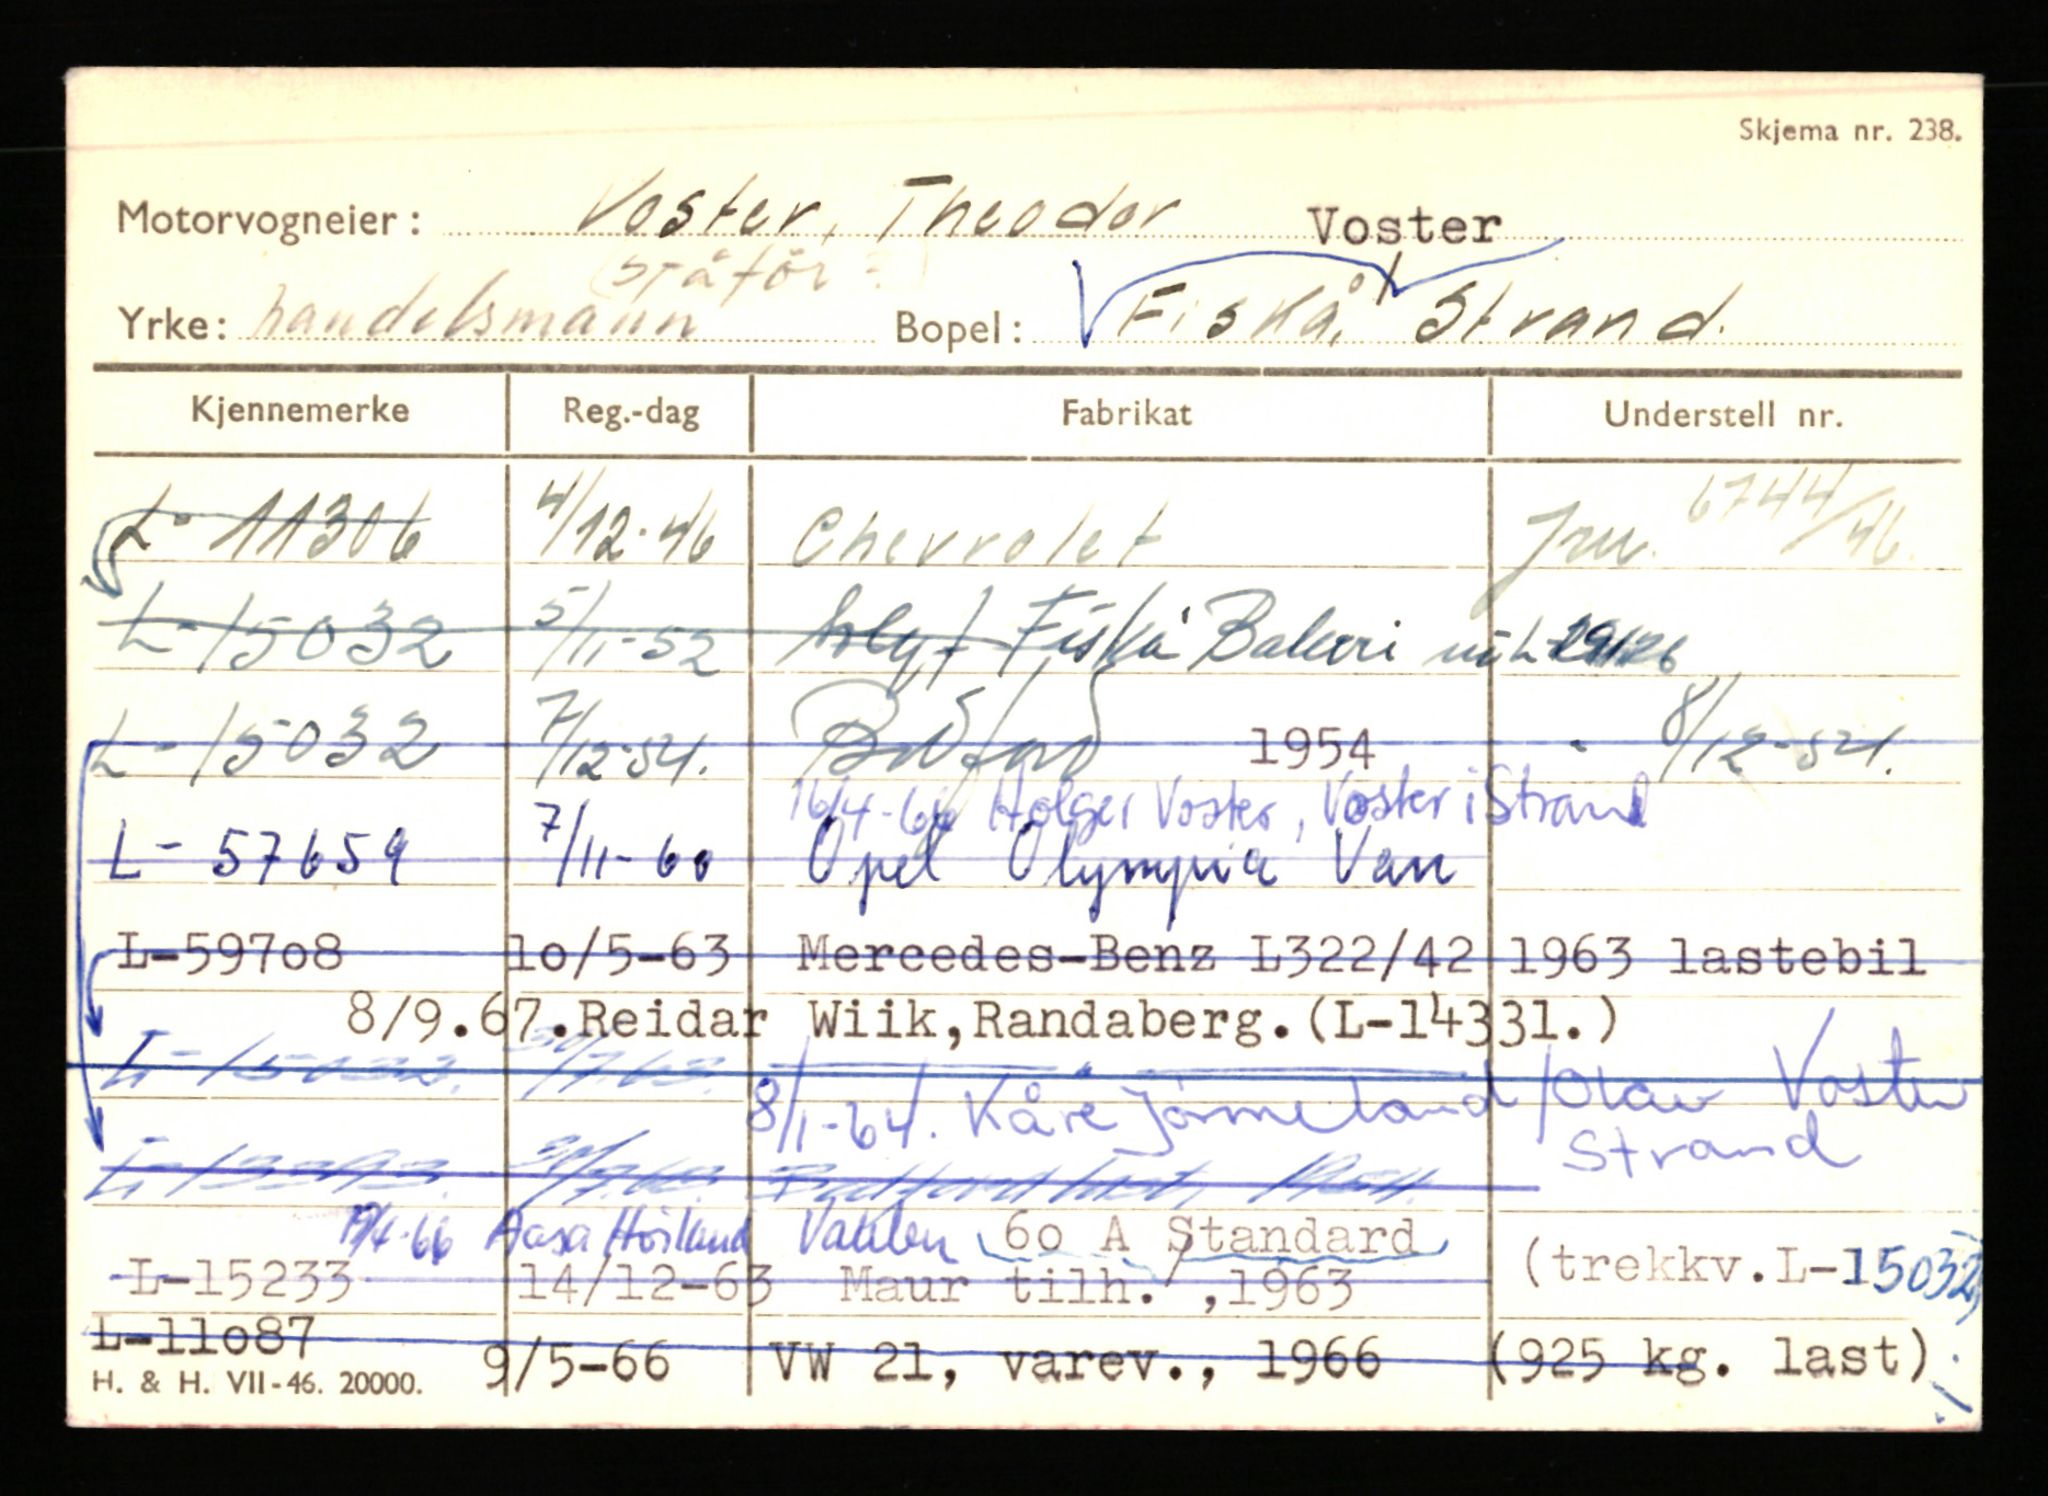 Skjema nr. 238.
Motorvogneier: Voster, Theodor Voster
(sjåfør?)
Yrke: handelsmann Bopel: Fiskå, Strand.
Kjennemerke Reg.-dag Fabrikat Understell nr.
L- 11306 4/12-46 Chevrolet Jnr. 6744/46.
L-15032 5/11-52 solgt Fiskå Bakeri nå L
L-15032 7/12-54. Bedford 1954 8/12-54.
16/4-66 Holger Voster, Voster i Strand
L- 57659 7/11-60 Opel Olympia Van
L-59708 10/5-63 Mercedes-Benz L322/42 1963 lastebil
8/9.67. Reidar Wiik, Randaberg. (L-14331.)
L-15032. 30/7.63.
8/1-64. Kåre Jørmeland / Olav Voster
Strand
30/7.63. Bedford last, 1954.
19/4-66 Aasa Høiland 60 A Standard
L-15233 14/12-63 Maur tilh. / ,1963 (trekkv.L-15032)
L-11087 9/5-66 VW 21, varev., 1966 (925 kg. last)
H. & H. VII-46. 20000.